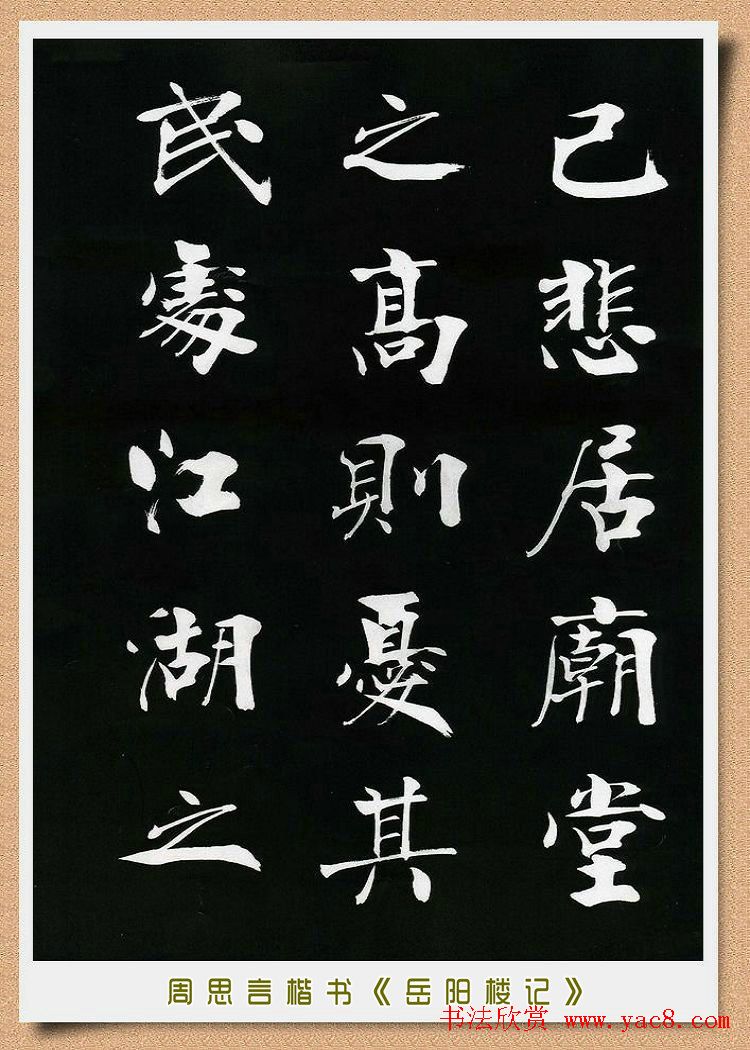 己悲居廟堂
之高則憂其
民處江湖之
周思言楷书《岳阳楼记》
书法欣赏 www.yac8.com